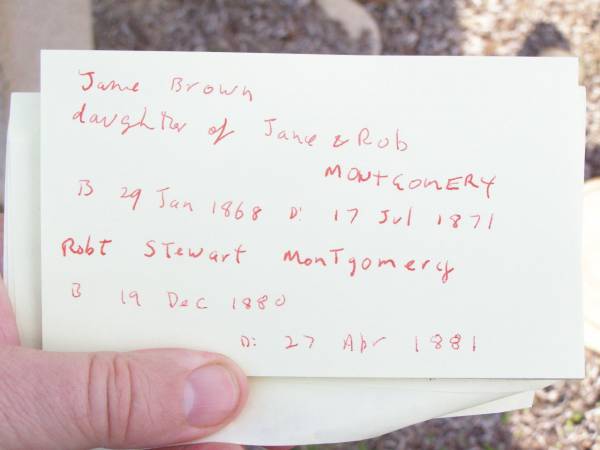 Jane Brown
daughter of Jane & Rob
MONTGOMERY
B 29 Jan 1868 D: 17 Jul 1871
Robt Stewart Montgomery
B 19 Dec 1880
D: 27 Apr 1881